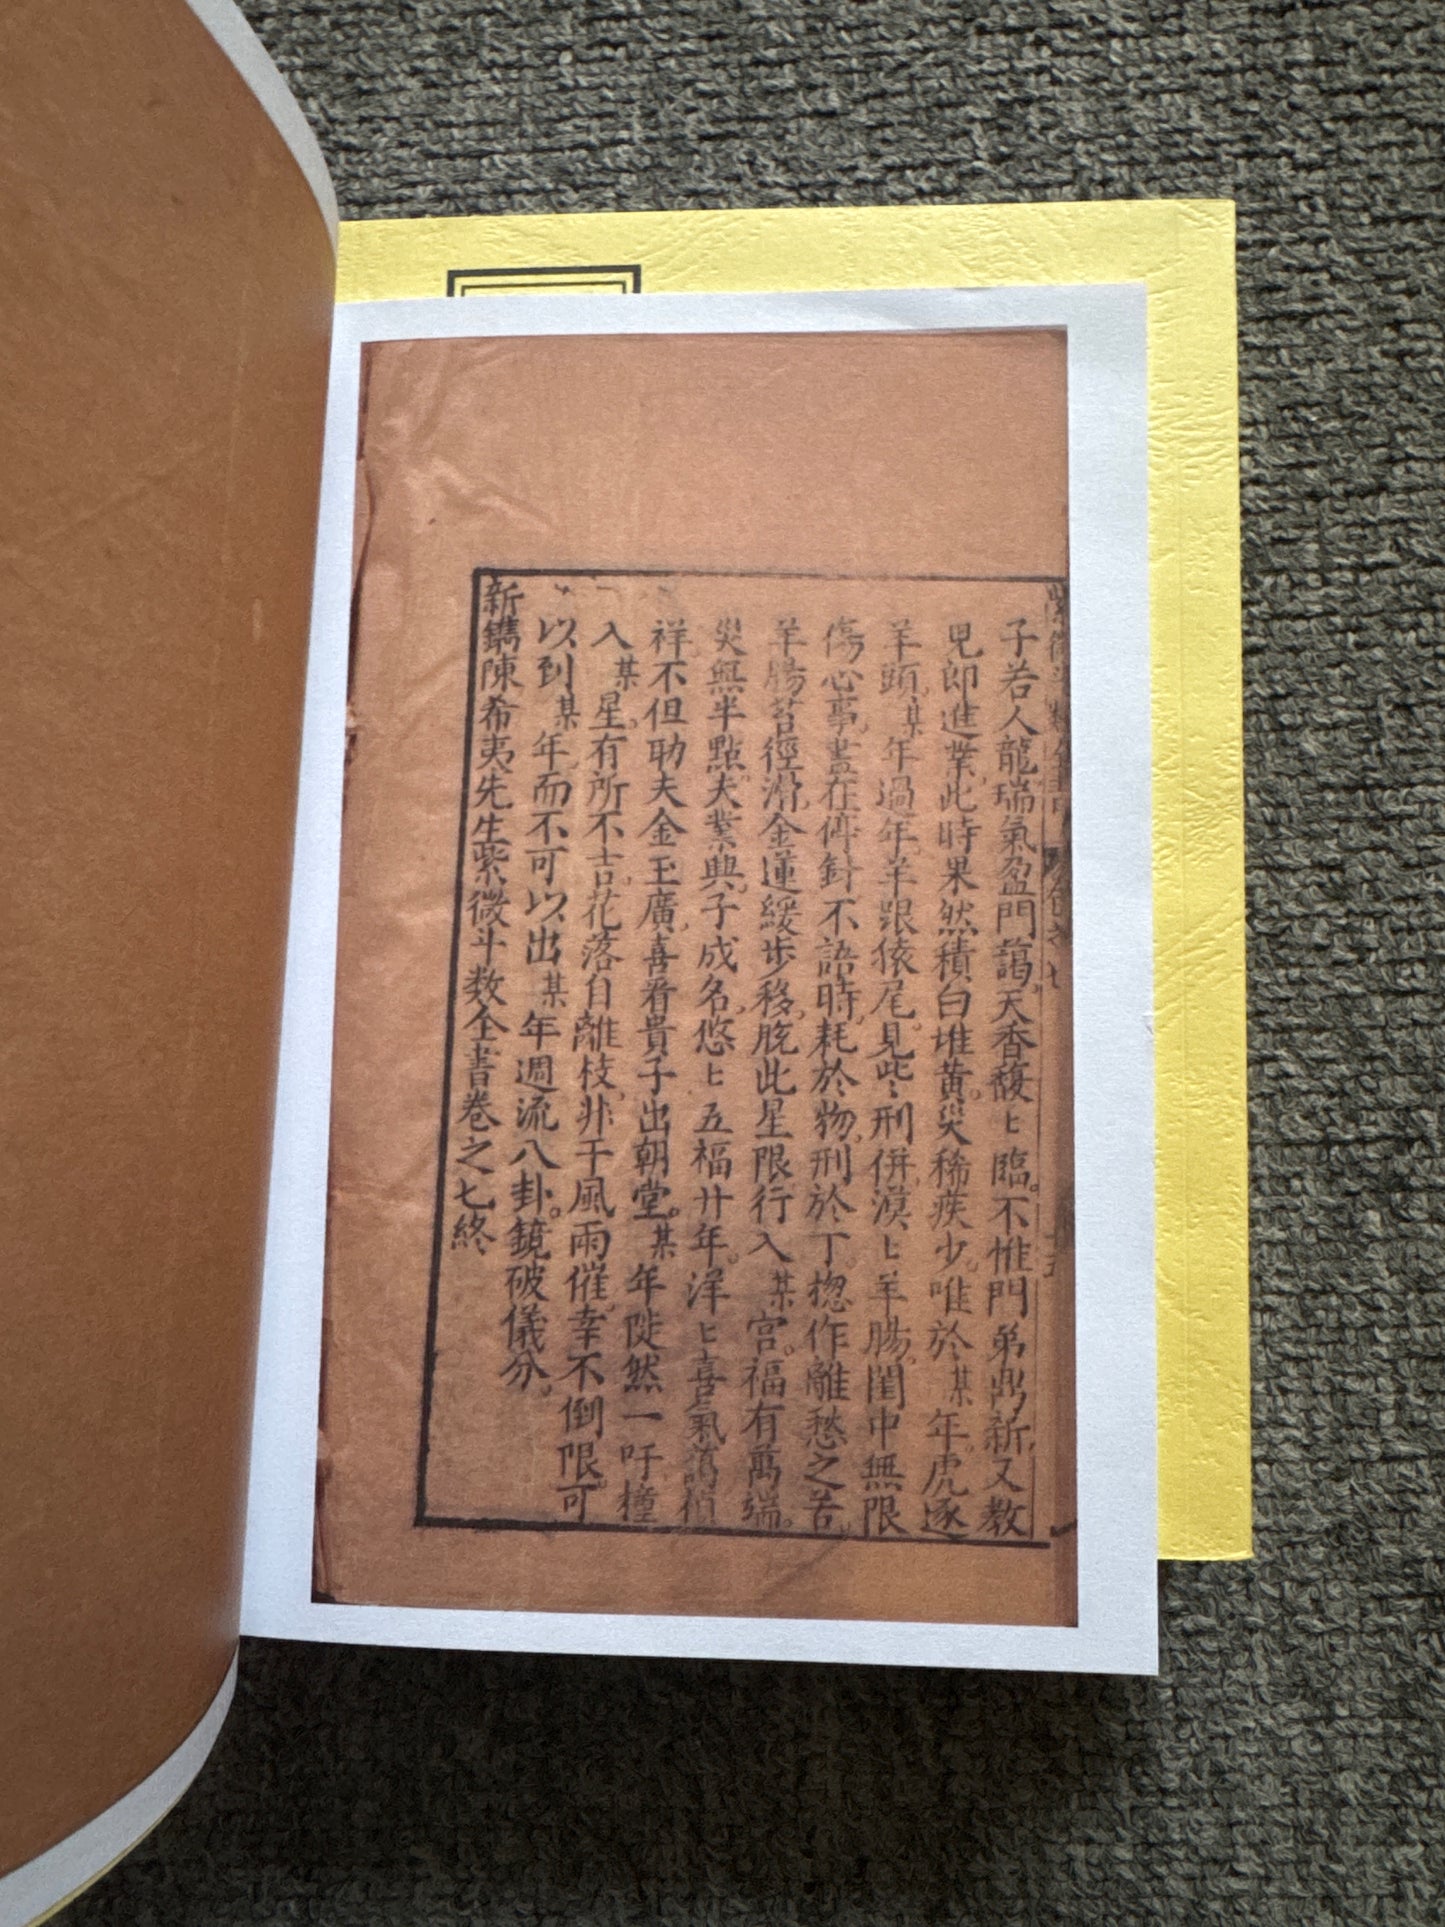 子若人龍瑞氣盈門藹天香馥〻臨。不惟門弟鼎新又教
児郎進業此時果然積白堆黃。災稀疾少。唯於某年。虎逐
羊頭某年過年羊跟猿尾。見些刑併漠〻羊腸。閨中無限
傷心事。盡在停針不語時。耗於物。刑於丁揔作離愁之苦。
羊腸苔徑滑。金蓮緩步移。脫此星限行入某宮。福有萬端。
災無半點。夫業興。子成名。悠〻五福廾年。洋〻喜氣藹禎
祥。不但助夫金玉廣。喜看貴子出朝堂。某年陡然一吁撞
入某星。有所不吉。花落自離枝。非干風雨催。幸不倒限。可
以到某年。而不可以出某年週流八卦。鏡破儀分。
新鐫陳希夷先生紫微斗数全書卷之七終